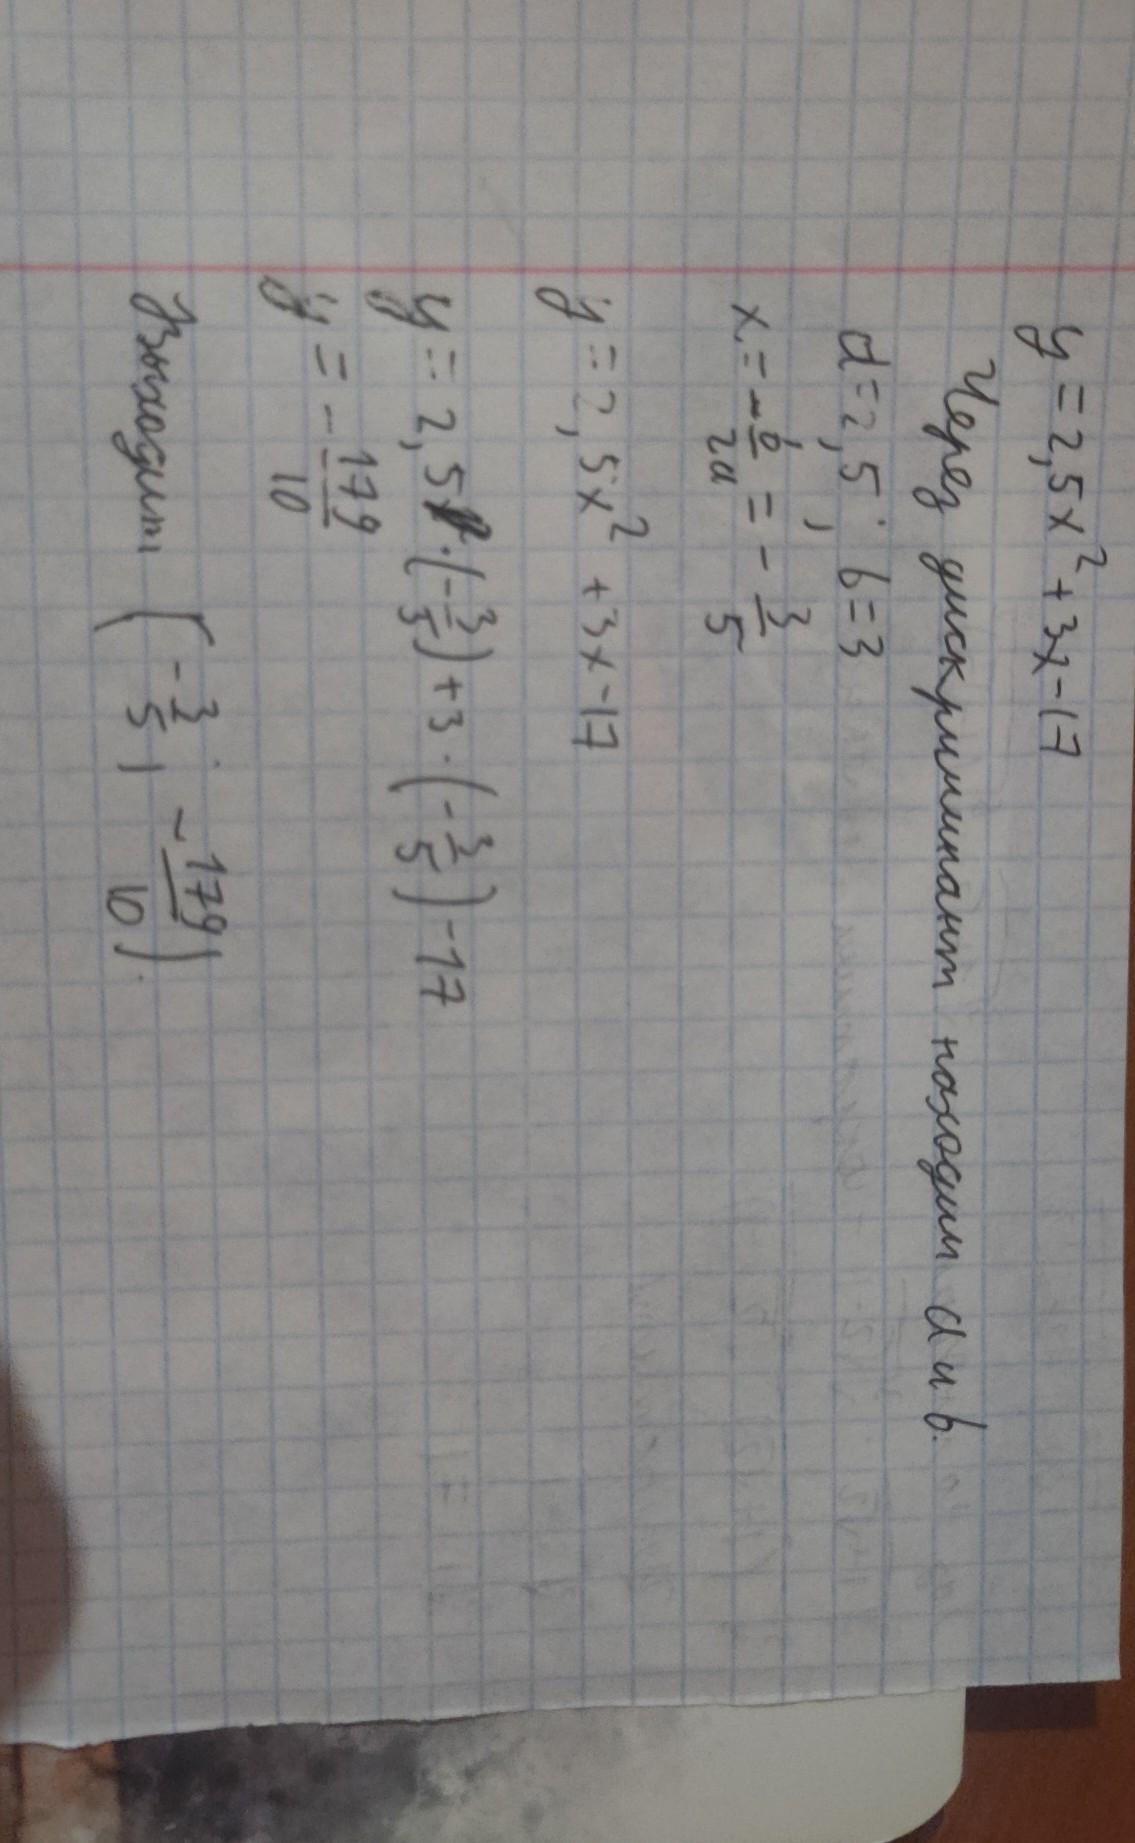 y = 2,5x² + 3x - 17
Через дискриминант находим a и b.
a = 2,5 ; b = 3
x = - b/2a = - 3/5
y = 2,5x² + 3x - 17
y = 2,5 · (-3/5) + 3 · (-3/5) - 17
y = - 179/10
Выходит (-3/5 ; - 179/10).